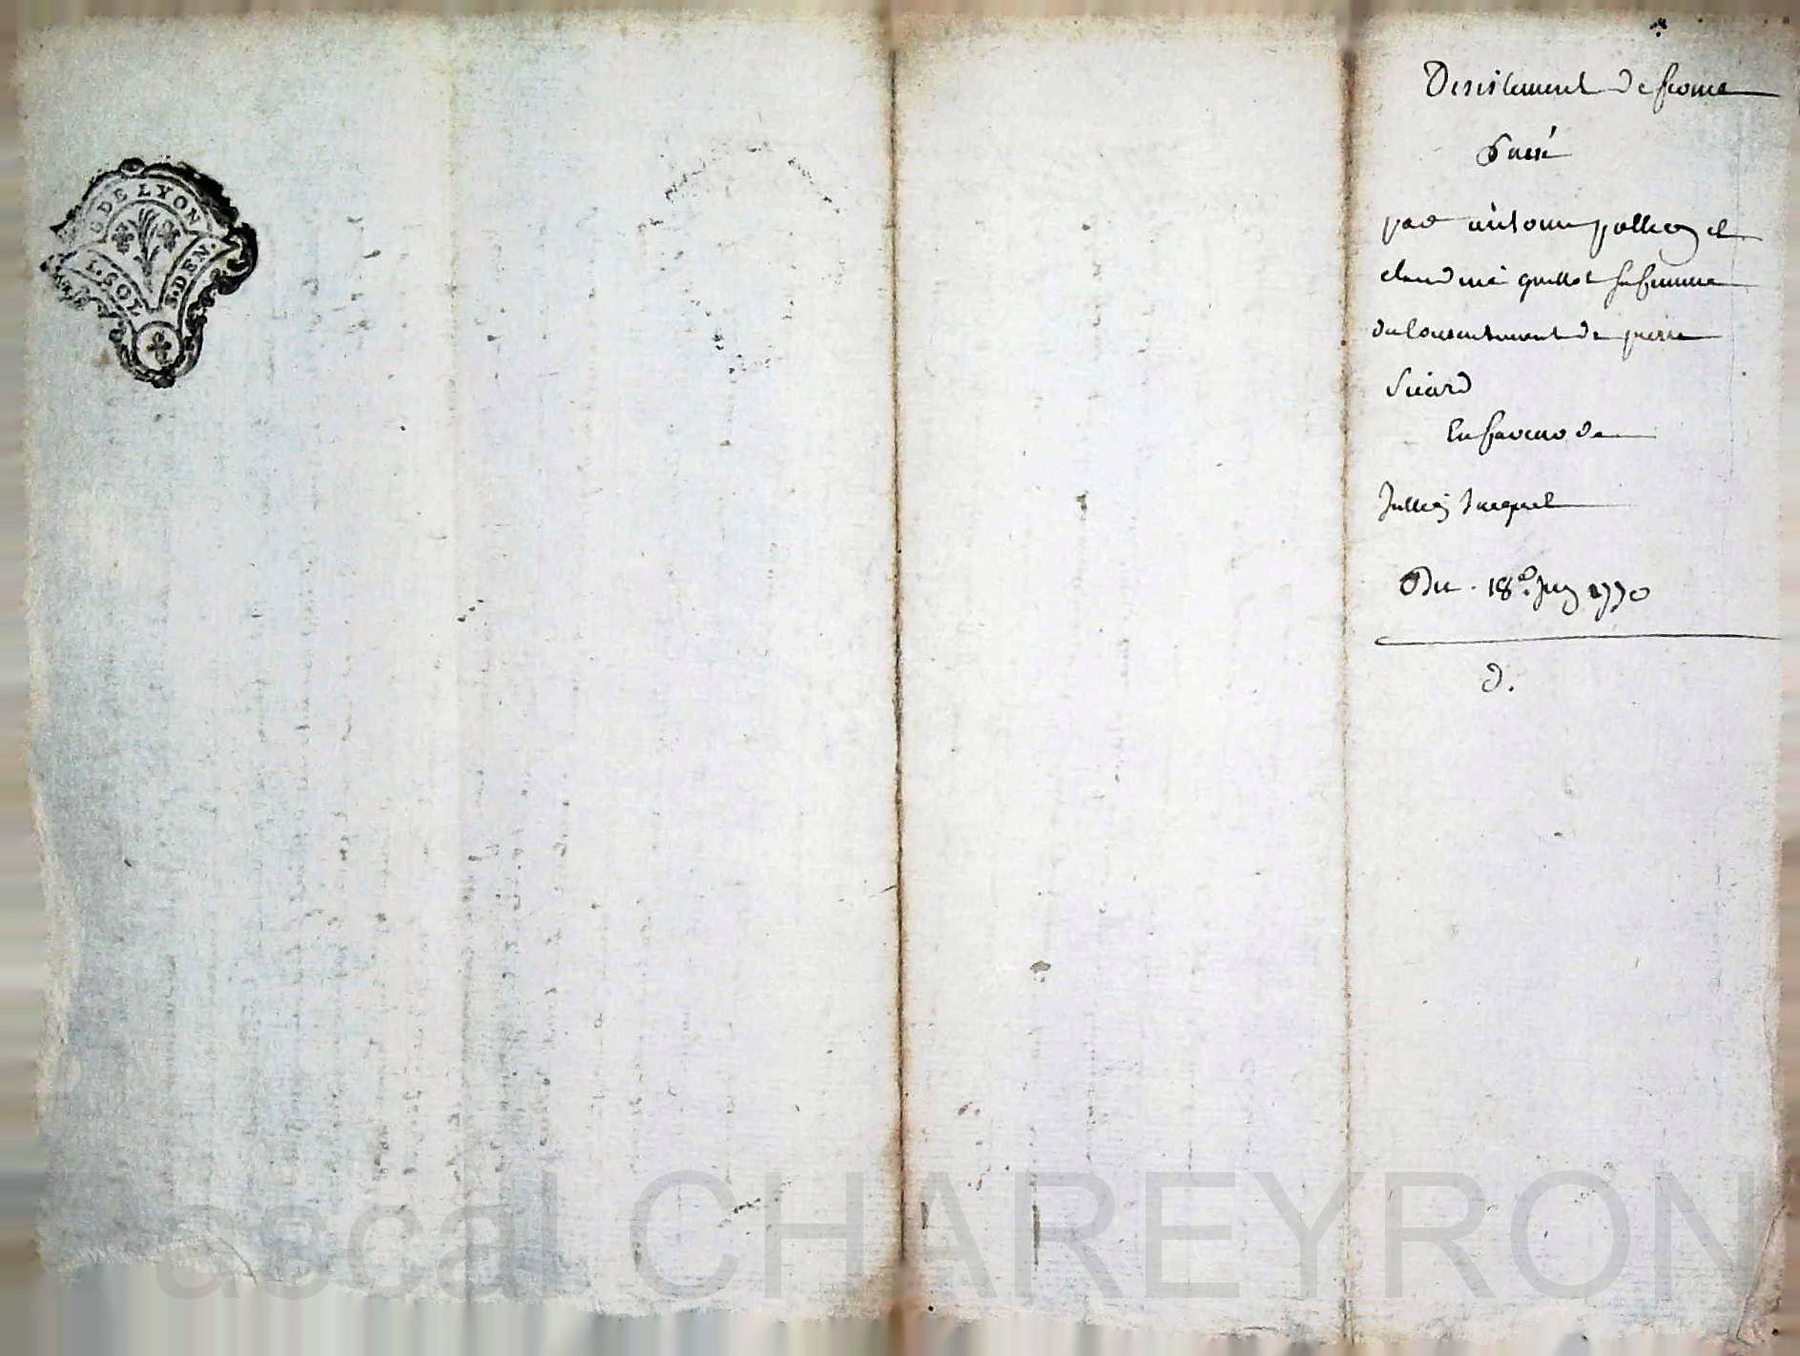 G. DE LYON
1. SOL 8. DEN.
Desistement de
passé
par antoine pollieg et
claudine guillot sa femme
du consentement de pierre
Sicard
En faveur de
Jullieg Jacquet
Du 18e. Juig 1770
D.
ascal CHAREYRON